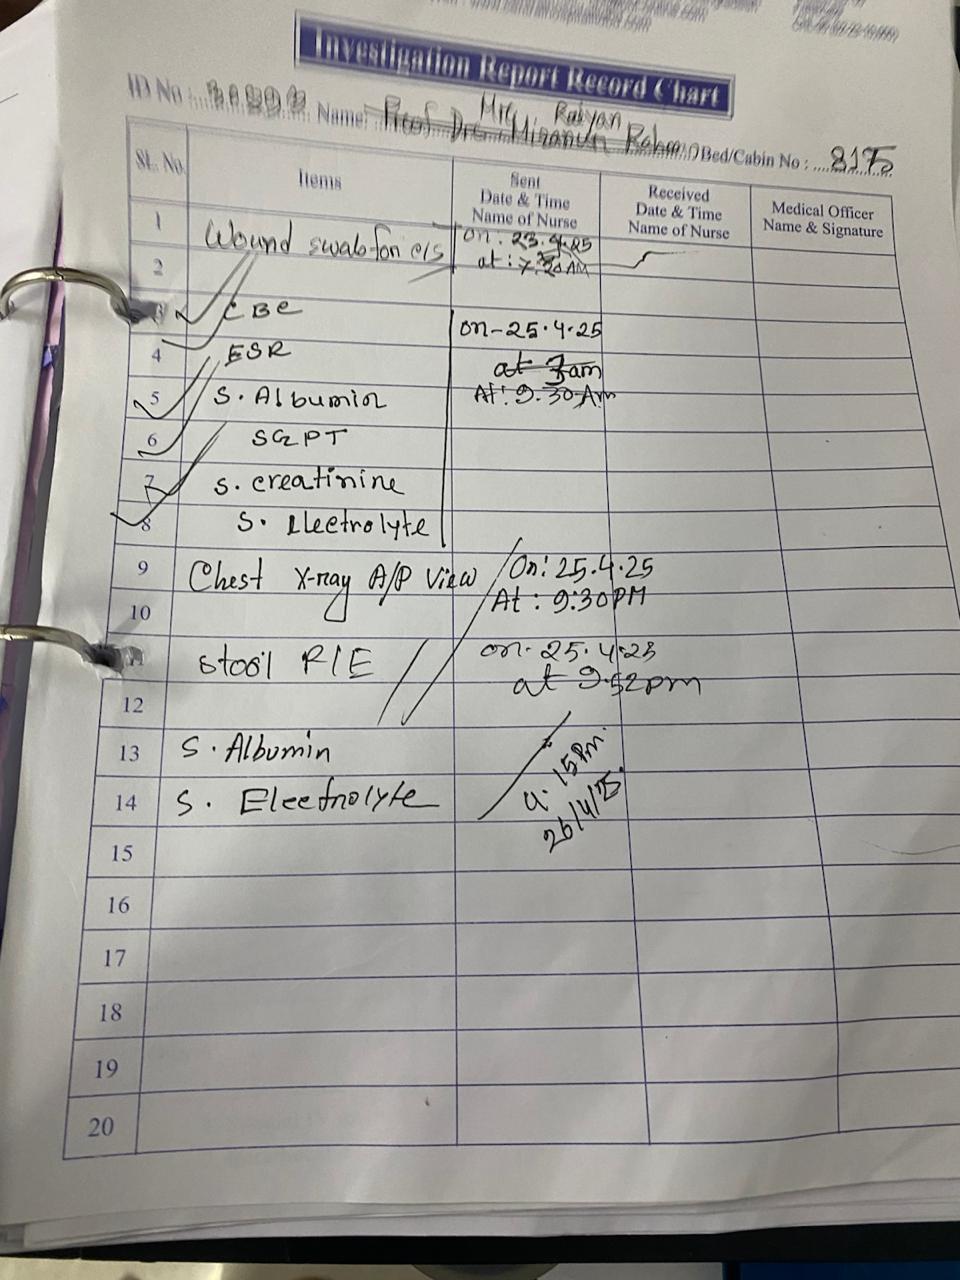 Investigation Report Record Chart
ID No : Name: Prof. Dr. Mizanur Rahman Bed/Cabin No : 8175
Raiyan
SL. No. Items Sent Date & Time Name of Nurse Received Date & Time Name of Nurse Medical Officer Name & Signature
1 Wound swab for c/s on: 23.4.25
2 at: 7.30 AM
3 CBC on-25.4.25
4 ESR at 7am
5 S. Albumin At: 9.30 Am
6 SGPT
7 S. creatinine
8 S. Electrolyte
9 Chest X-ray A/P view On: 25.4.25
10 At : 9:30PM
11 Stool R/E on- 25.4.25
12 at 9.52pm
13 S. Albumin
14 S. Electrolyte 15 Pm
26/4/25
15
16
17
18
19
20